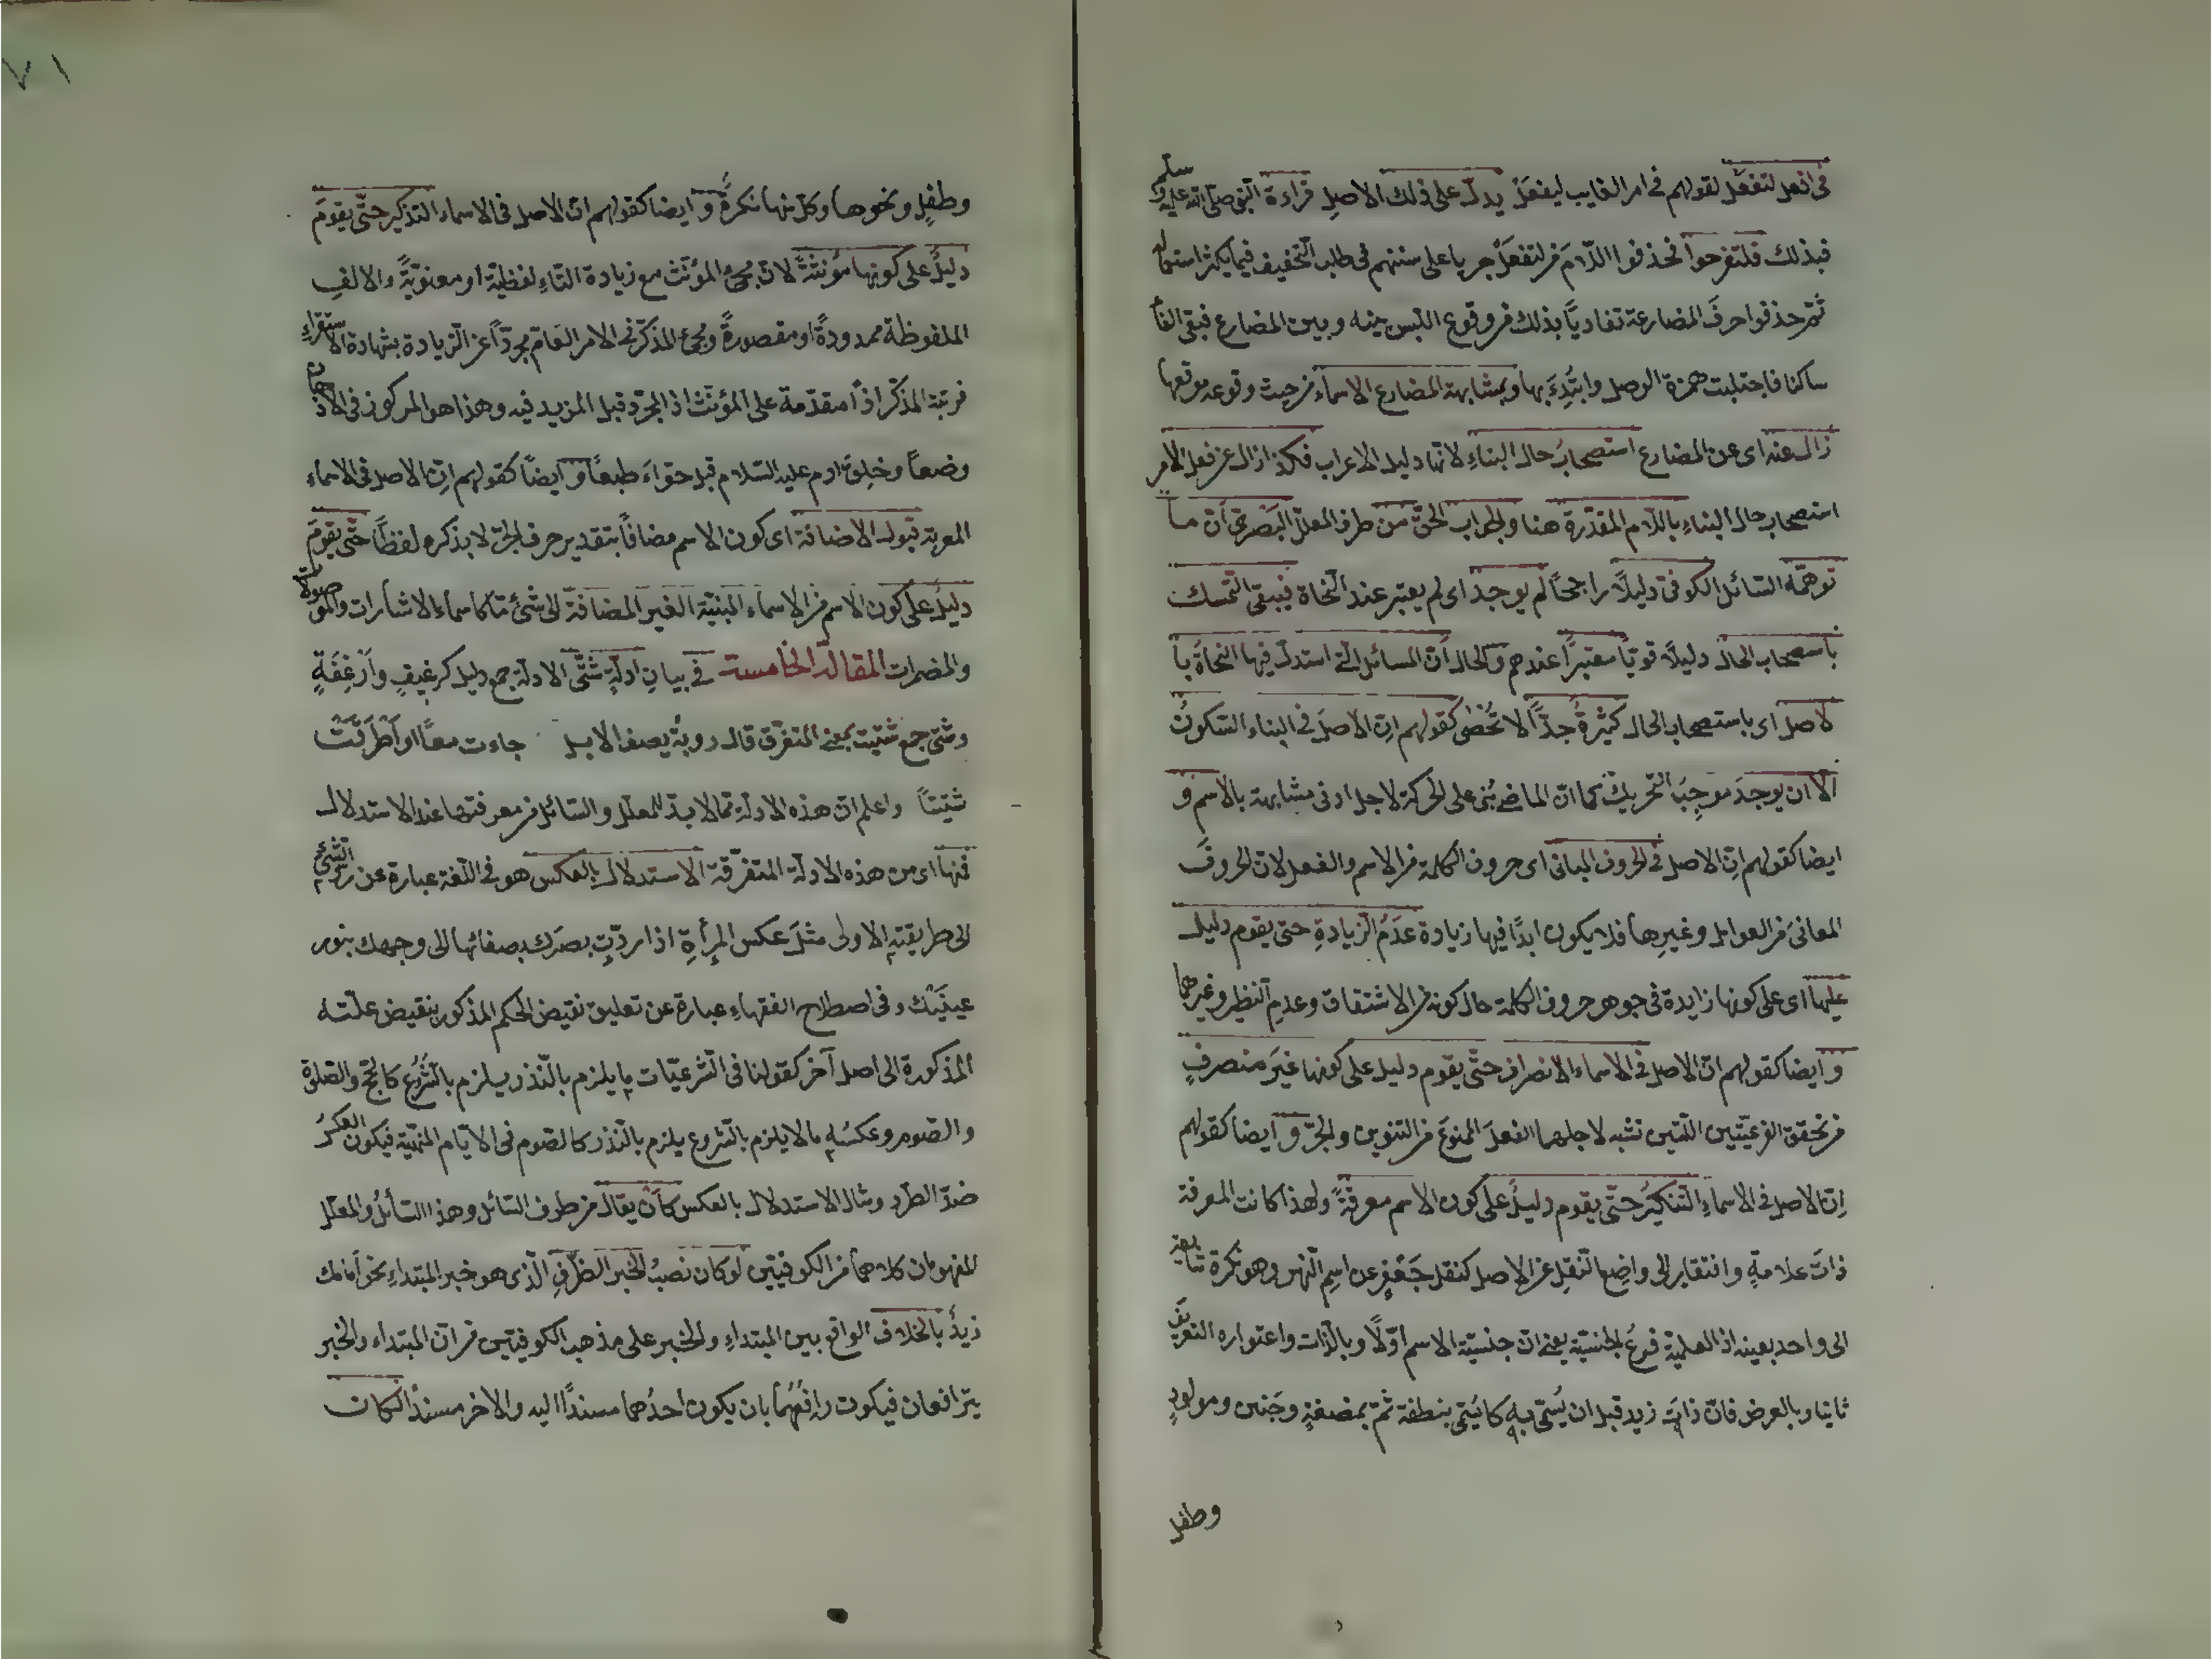 في افعل لتفعل لقولهم في امر الغايب ليفعل يدل على ذلك الاصل قراءة النبي صلى الله عليه وسلم
فبذلك فلتفرحوا فحذفوا اللام من لتفعل جريا على سننهم في طلب التخفيف فيما يكثر استعماله
ثم حذفوا حرف المضارعة تفاديا بذلك من وقوع اللبس بينه وبين المضارع فبقى الفاء
ساكنا فاجتلبت همزة الوصل وابتدئ بها وبمشابهة المضارع الاسماء من حيث وقوعه موقعها
زال عنه اى عن المضارع استصحاب حال البناء لانها دليل الاعراب فكذا زال عن فعل الامر
استصحاب حال البناء باللام المقدرة هنا والجواب الحق من طرف المعلل البصرى ان ما
توهمه السائل الكوفى دليلا راجحا لم يوجد اى لم يعتبر عند النحاة فيبقى التمسك
باستصحاب الحال دليلا قويا معتبرا عندهم والحال ان المسائل التى استدل فيها النحاة با
لاصل اى باستصحاب الحال كثيرة جدا لا تحصى كقولهم ان الاصل فى البناء السكون
الا ان يوجد موجب التحريك كما ان الماضى بنى على الحركة لاجل ادنى مشابهة بالاسم و
ايضا كقولهم ان الاصل فى الحروف المبانى اى حروف الكلمة من الاسم والفعل لان الحروف
المعانى من العوامل وغيرها فلا يكون ابدا فيها زيادة عدم الزيادة حتى يقوم دليل
عليها اى على كونها زايدة فى جوهر حروف الكلمة حال كونه من الاشتقاق وعدم النظير وغيرهما
و ايضا كقولهم ان الاصل فى الاسماء الانصراف حتى يقوم دليل على كونها غير منصرف
من تحقق الفرعيتين اللتين تشبه لاجلهما الفعل الممنوع من التنوين والجر و ايضا كقولهم
ان الاصل فى الاسماء التنكير حتى يقوم دليل على كون الاسم معرفة ولهذا كانت المعرفة
ذات علامة وافتقار الى واضع النقل عن الاصل كنقل جعفر عن اسم النهر وهو نكرة شايعة
الى واحد بعينه اذ العلمية فرع الجنسية يعنى ان جنسية الاسم اولا وبالذات واعتواره التعريف
ثانيا وبالعرض فان ذات زيد قبل ان يسمى به كا يسمى بنطفة ثم بمضغة وجنين ومولود
وطفل
٧١
وطفل ونحوها وكل منها نكرة و ايضا كقولهم ان الاصل فى الاسماء التذكير حتى يقوم
دليل على كونها مؤنثة لان مجئ المؤنث مع زيادة التاء لفظية او معنوية والالف
الملفوظة ممدودة او مقصورة ومجئ المذكر فى الامر العام مجردا عن الزيادة بشهادة الاستقراء
فرتبة المذكر اذا متقدمة على المؤنث اذ المجرد قبل المزيد فيه وهذا هو المركوز فى الاذهان
وضعا وخلق ادم عليه السلام قبل حواء طبعا و ايضا كقولهم ان الاصل فى الاسماء
المعربة قبول الاضافة اى كون الاسم مضافا بتقدير حرف الجر لا بذكره لفظا حتى يقوم
دليل على كون الاسم من الاسماء المبنية الغير المضافة الى شئ ما كاسماء الاشارات والموصولات
والمضمرات المقالة الخامسة فى بيان ادلة شتى الادلة جمع دليل كرغيف وارغفة
وشتى جمع شتيت بمعنى المتفرق قال روبة يصف الابل جاءت معا او اطرقت
شتيتا واعلم ان هذه الادلة مما لا بد للمعلل والسائل من معرفتها عند الاستدلال
فمنها اى من هذه الادلة المتفرقة الاستدلال بالعكس هو فى اللغة عبارة عن رد الشئ
الى طريقته الاولى مثل عكس المرأة اذا ردت بصرك بصفائها الى وجهك بنور
عينيك وفى اصطلاح الفقهاء عبارة عن تعليق نقيض الحكم المذكور بنقيض علته
المذكورة الى اصل آخر كقولنا فى الشرعيات ما يلزم بالنذر يلزم بالشروع كالحج والصلوة
والصوم وعكسه ما لا يلزم بالشروع يلزم بالنذر كالصوم فى الايام المنهية فيكون العكس
ضد الطرد ومثال الاستدلال بالعكس كأن يقال من طرف السائل وهذا السائل والمعلل
المفهومان كلاهما من الكوفيين لو كان نصب الخبر الظرف الذى هو خبر المبتداء نحو امامك
زيد بالخلاف الواقع بين المبتداء والخبر على مذهب الكوفيين من ان المبتداء والخبر
يترافعان فيكون رافعهما بان يكون احدهما مسندا اليه والاخر مسندا لكان